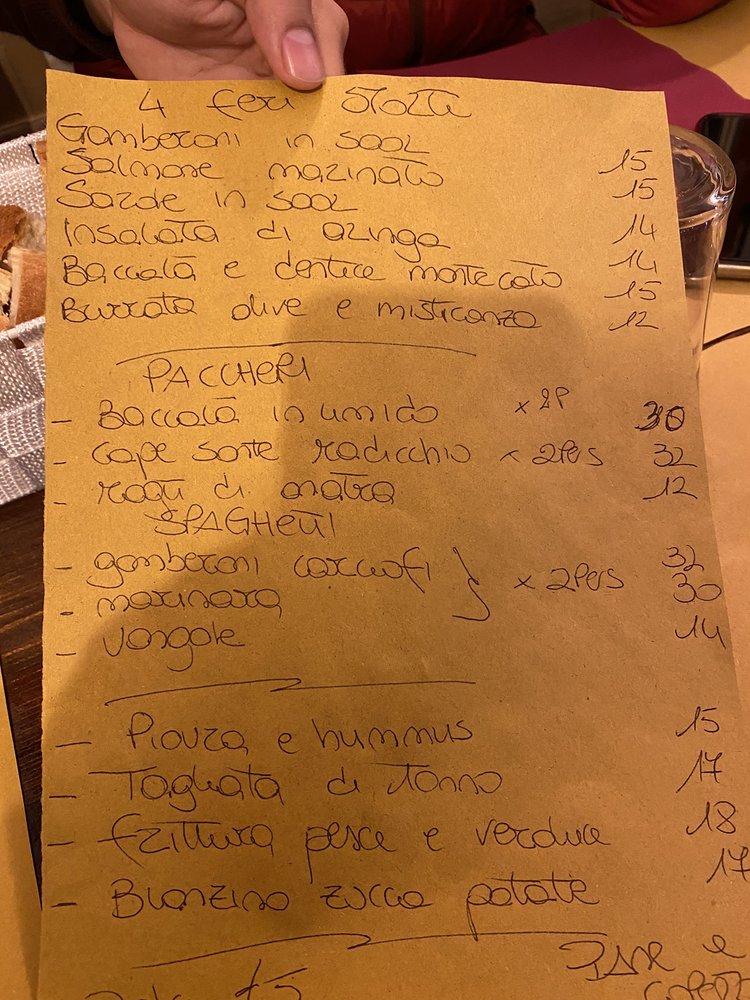 4 feri STORTI
Gamberoni in SAOR 15
Salmone marinato 15
Sarde in SAOR 14
Insalata di aringa 14
Baccalà e dentice mantecato 15
Burrata olive e misticanza 12
PACCHERI
- Baccalà in umido x 2P 30
- cape sante radicchio x 2Pers 32
- ragù di anatra 12
SPAGHETTI
- gamberoni carciofi 32
- marinara } x 2Pers 30
- vongole 14
- Piovra e hummus 15
- Tagliata di tonno 17
- frittura pesce e verdure 18
- Branzino zucca patate 17
PANE e